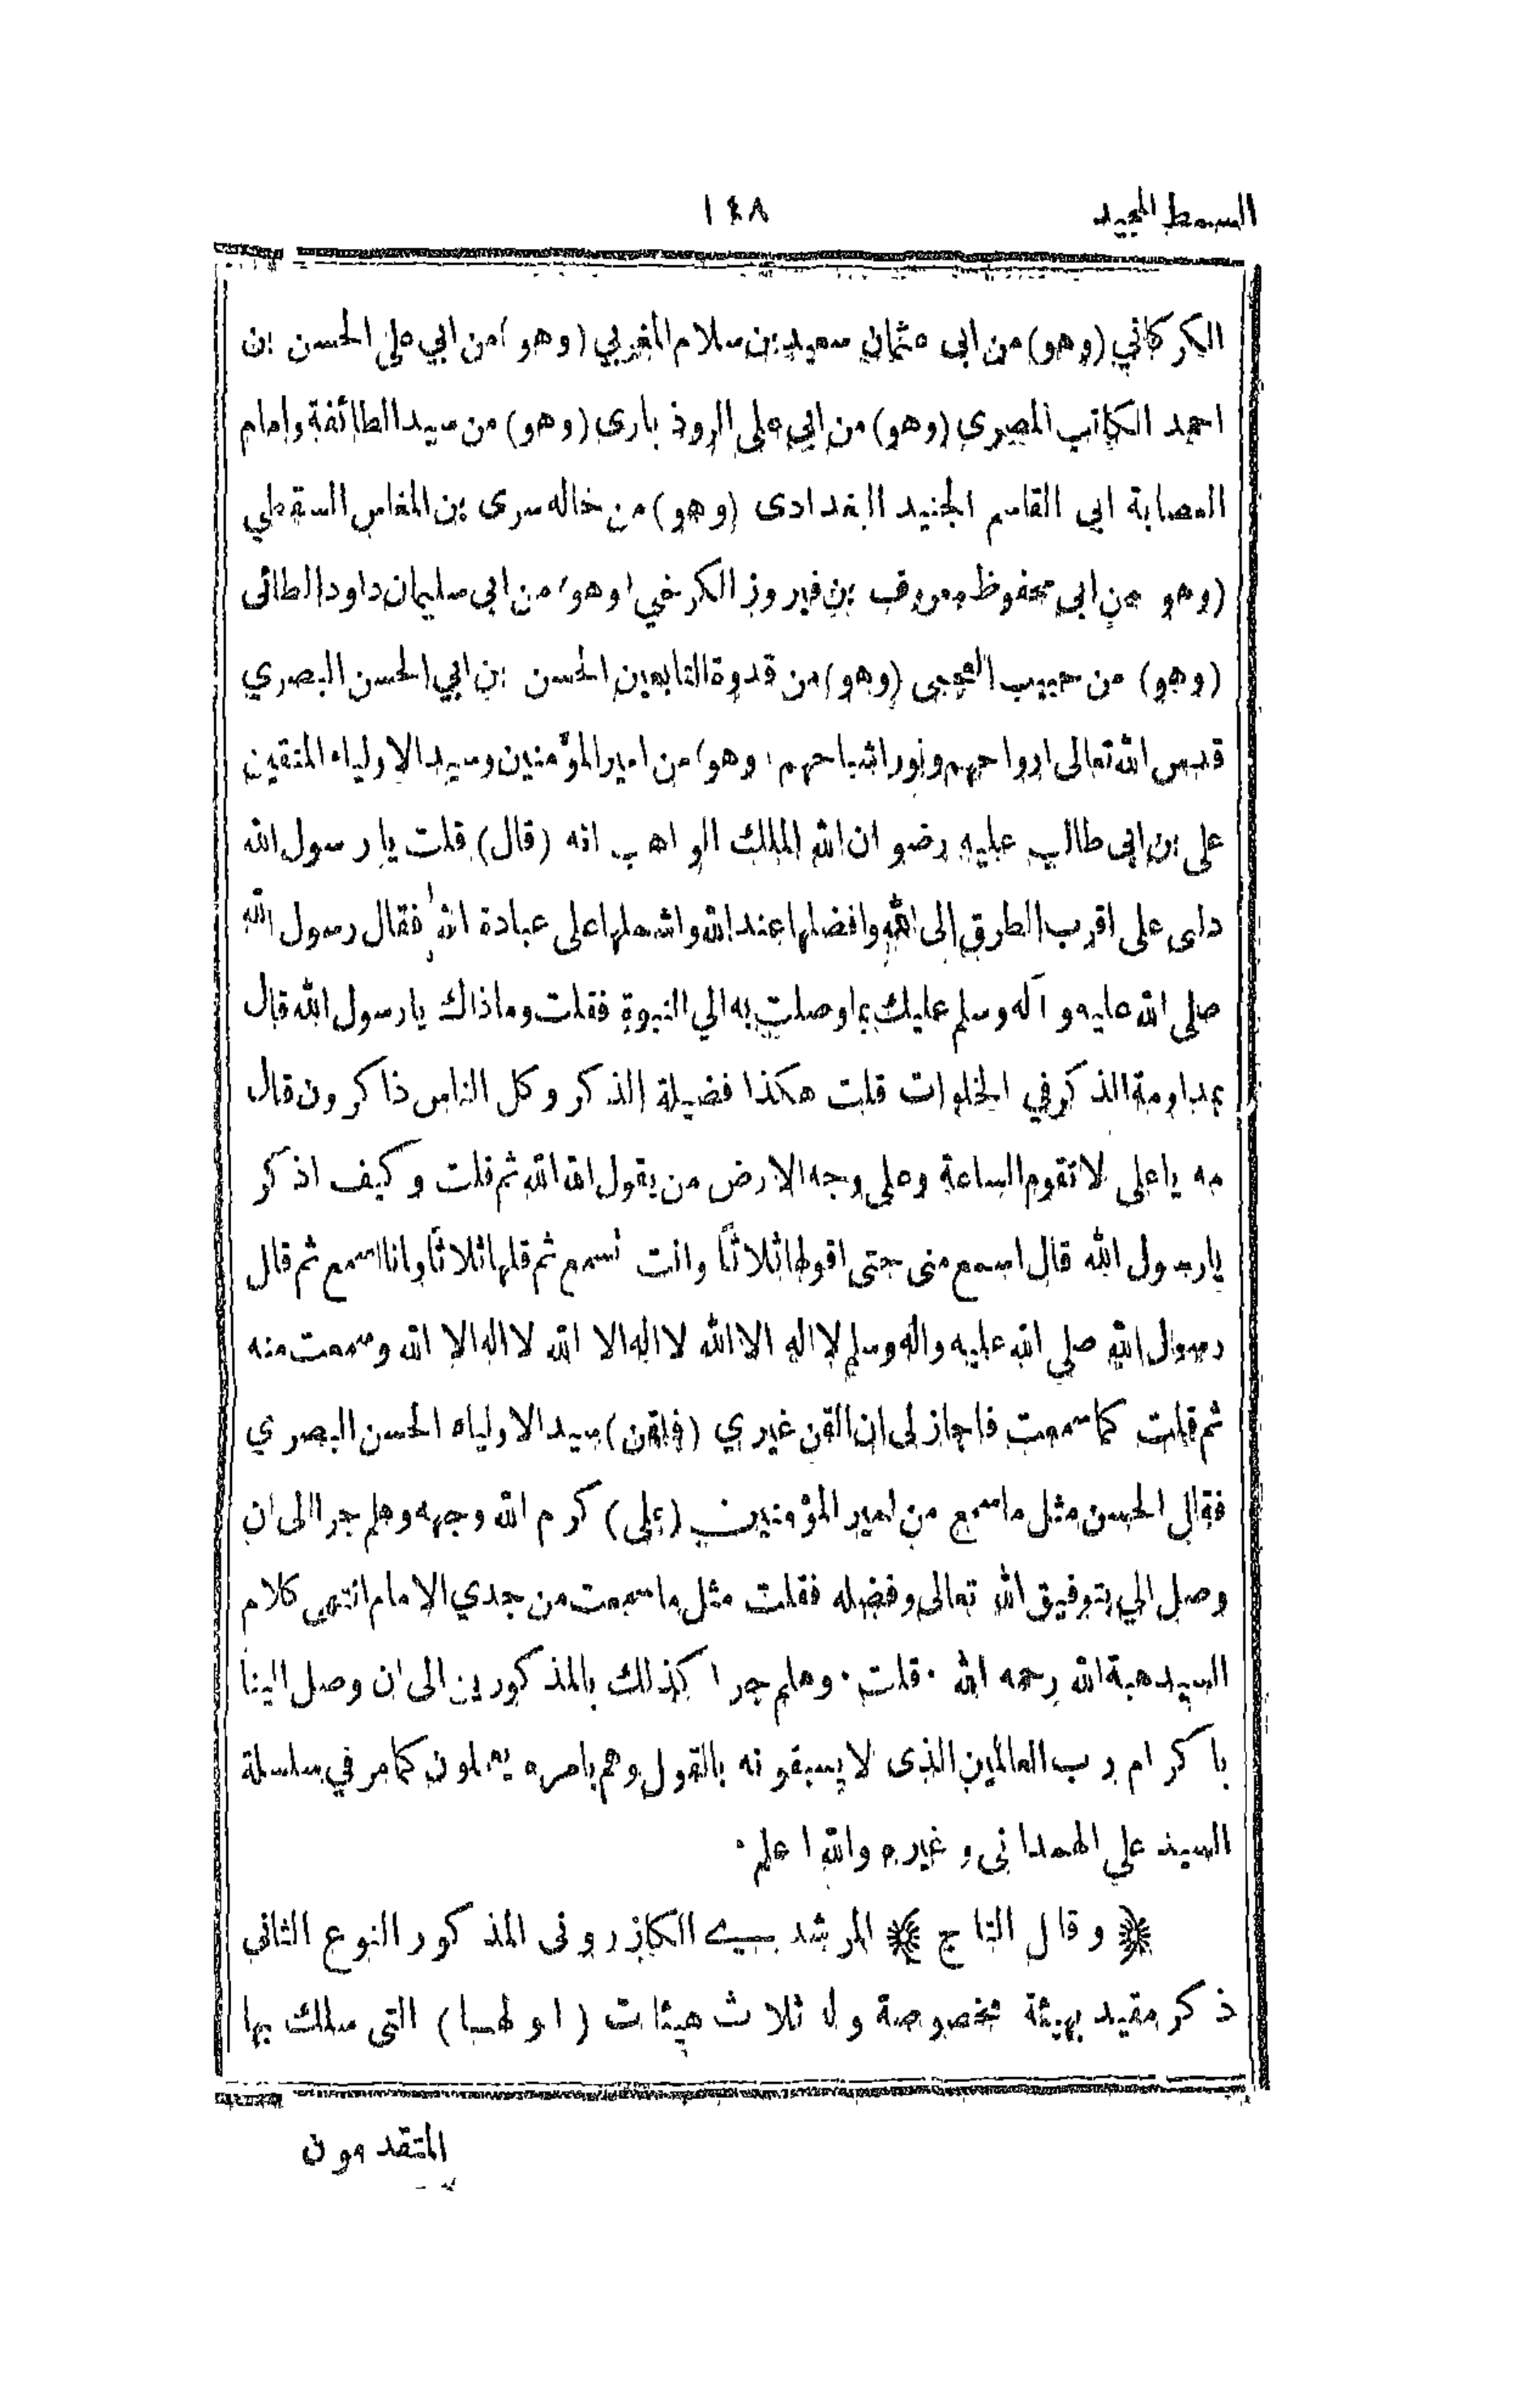 السمط المجيد
١٤٨
الكركاني (وهو) من ابى عثمان سعيد بن سلام المغربي (وهو) من ابي على الحسن بن
احمد الكاتب المصرى (وهو) من ابي على الروذ بارى (وهو) من سيد الطائفة وامام
العصابة ابى القاسم الجنيد البغدادى (وهو) من خاله سرى بن المغلس السقطي
(وهو) من ابى محفوظ معروف بن فيروز الكرخي (وهو) من ابى سليمان داود الطائى
(وهو) من حبيب العجمى (وهو) من قدوة التابعين الحسن بن ابي الحسن البصري
قدس الله تعالى ارواحهم ونور اشباحهم (وهو) من امير المؤمنين وسيد الاولياء المتقين
على بن ابى طالب عليه رضوان الله الملك الواهب انه (قال) قلت يا رسول الله
دلنى على اقرب الطرق إلى الله وافضلها عند الله واسهلها على عبادة الله فقال رسول الله
صلى الله عليه وآله وسلم عليك بما وصلت به الي النبوة فقلت وما ذاك يا رسول الله قال
بمداومة الذكر في الخلوات قلت هكذا فضيلة الذكر وكل الناس ذاكرون قال
مه يا على لا تقوم الساعة وعلى وجه الارض من يقول الله الله ثم قلت وكيف اذكر
يا رسول الله قال اسمع منى حتى اقولها ثلاثاً وانت تسمع ثم قلها ثلاثاً وانا اسمع ثم قال
رسول الله صلى الله عليه واله وسلم لا اله الا الله لا اله الا الله لا اله الا الله وسمعت منه
ثم قلت كما سمعت فاجاز لى ان القن غيري (فلقن) سيد الاولياء الحسن البصري
فقال الحسن مثل ما سمع من امير المؤمنين (على) كرم الله وجهه وهلم جرا الى ان
وصل الي بتوفيق الله تعالى وفضله فقلت مثل ما سمعت من جدي الامام انتهى كلام
السيد هبة الله رحمه الله ٠ قلت ٠ وهلم جرا كذلك بالمذكورين الى ان وصل الينا
باكرام رب العالمين الذى لا يسبقونه بالقول وهم بامره يعملون كما مر في سلسلة
السيد علي الهمدانى وغيره والله اعلم ٠
﴿ وقال التاج ﴾ المرشدي الكازرونى المذكور النوع الثانى
ذكر مقيد بهيئة مخصوصة وله ثلاث هيئات (اولها) التى سلك بها
المتقدمون